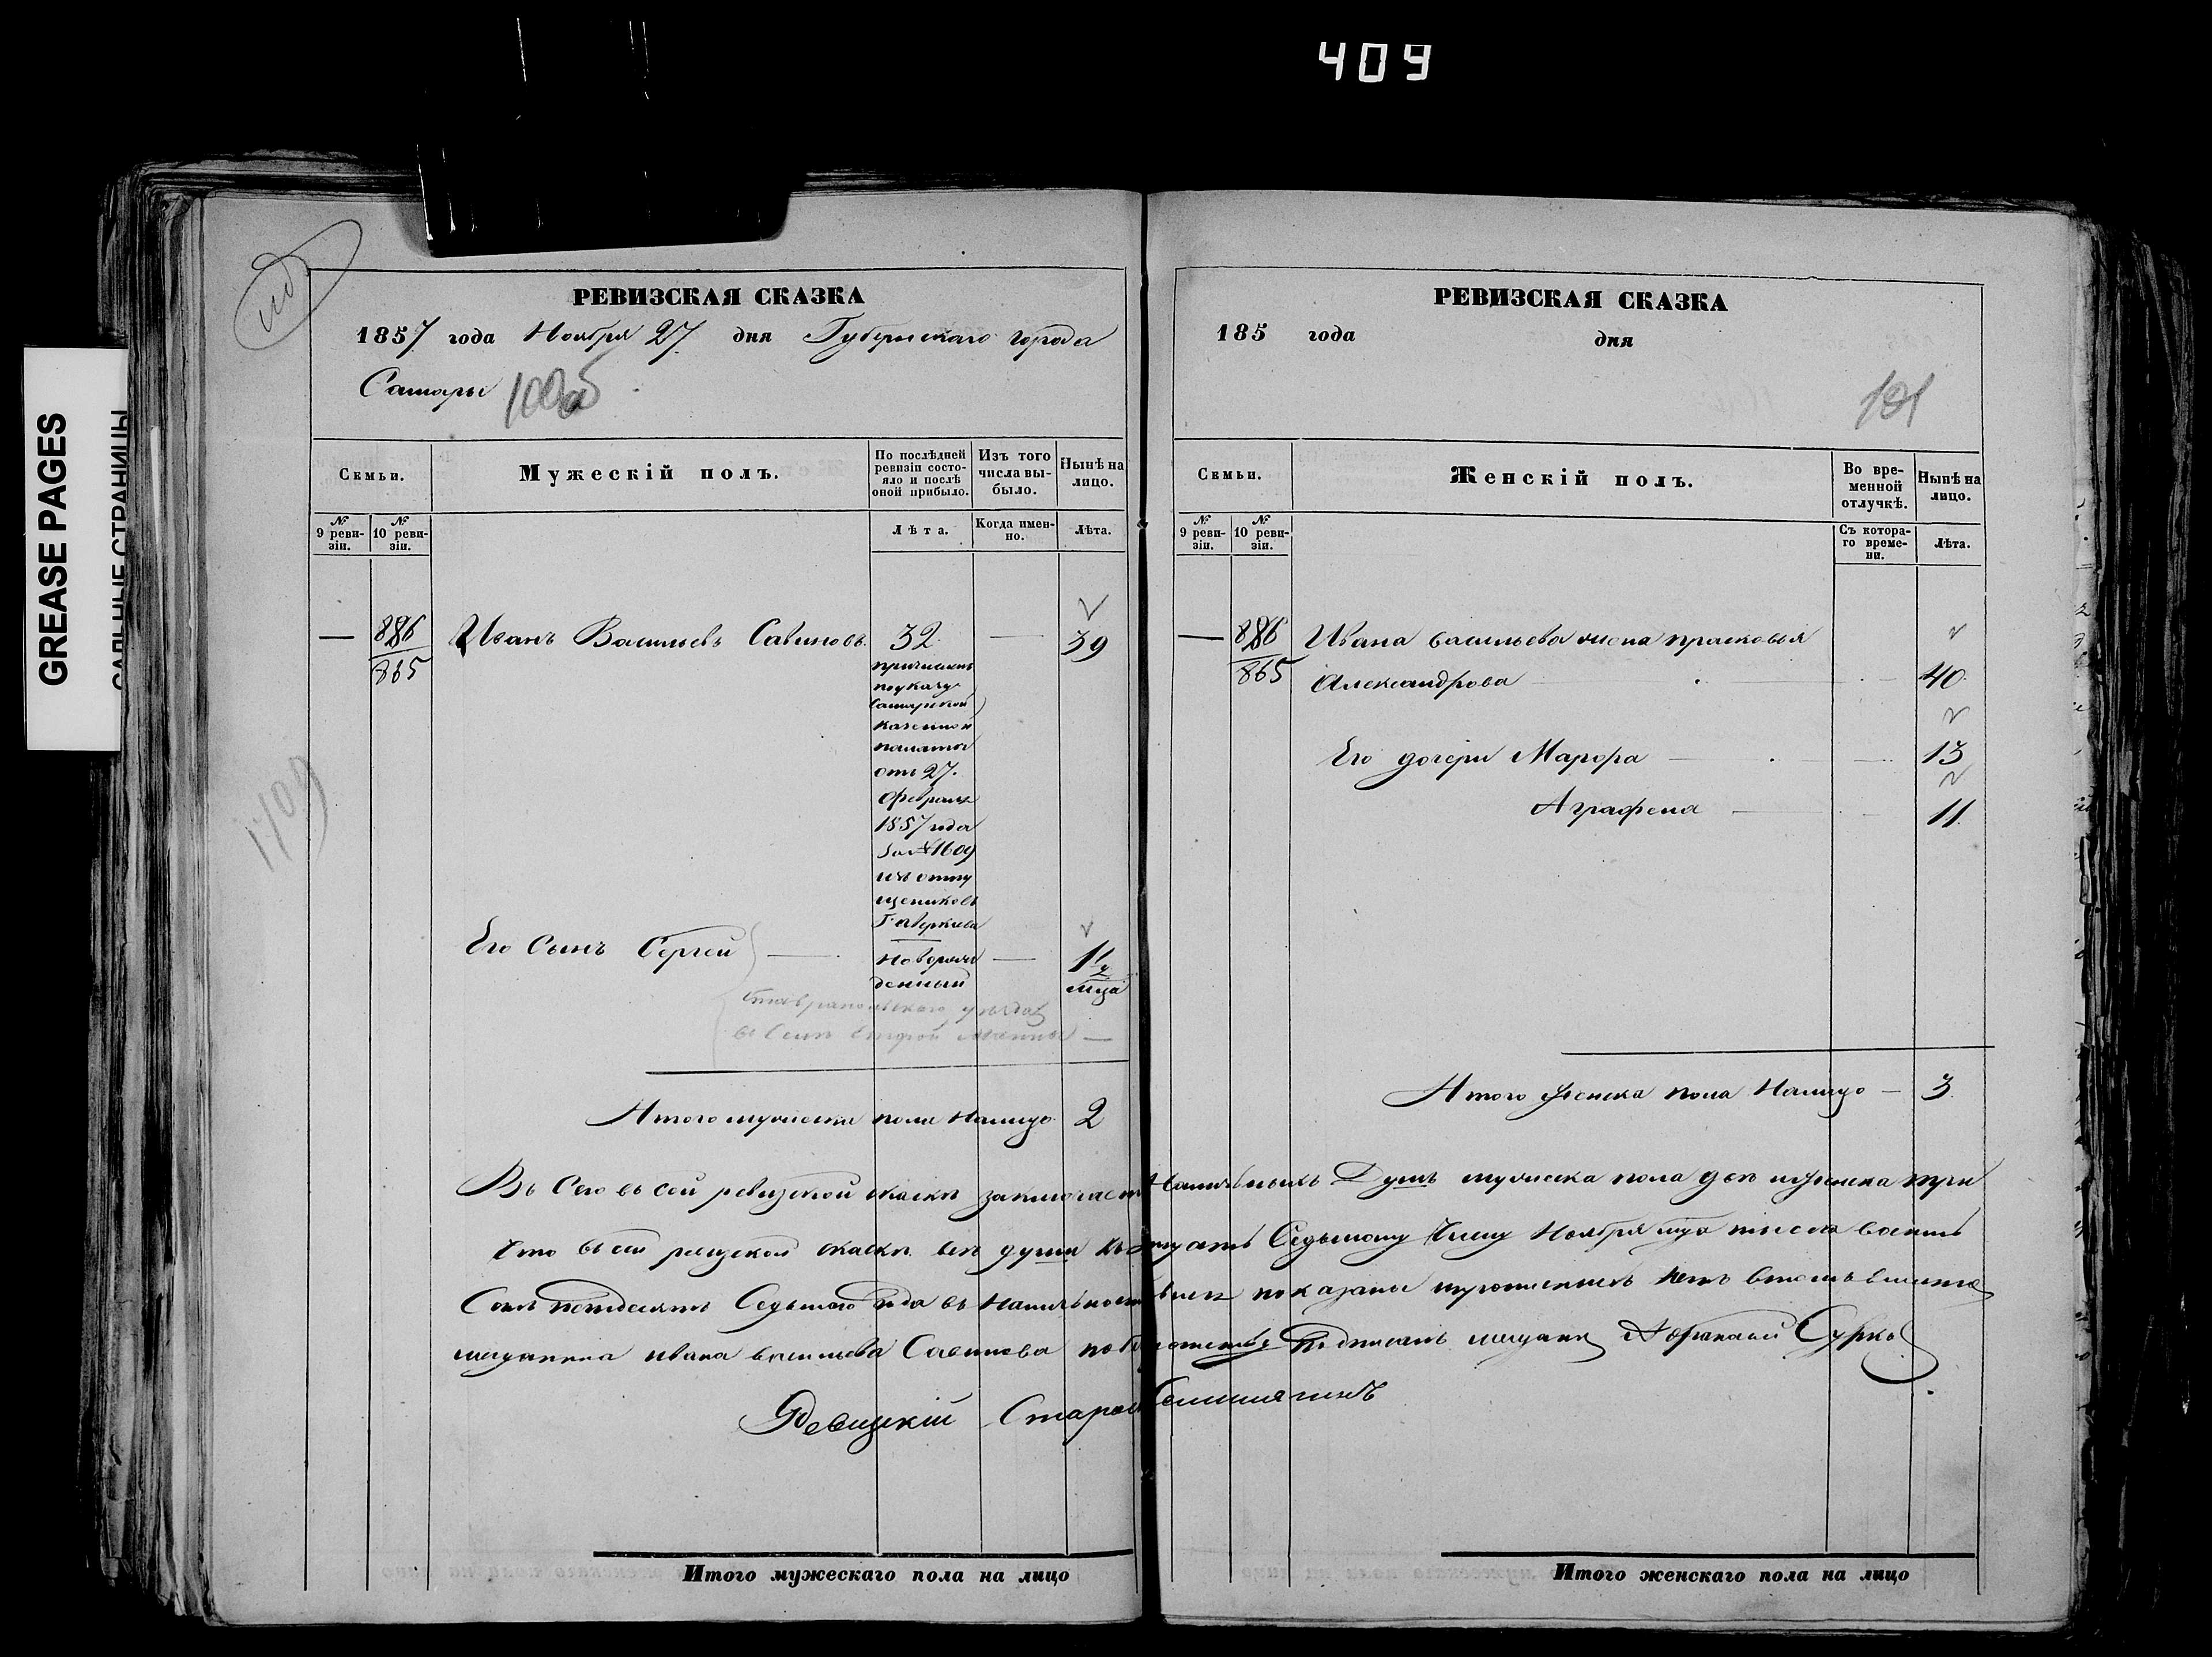 409
GREASE PAGES
САЛЬНЫЕ СТРАНИЦЫ
РЕВИЗСКАЯ СКАЗКА
1857 года Ноября 27 дня Губернскаго города
Самары
Семьи.
Мужескій полъ.
По послѣдней ревизіи состояло и послѣ оной прибыло.
Изъ того числа выбыло.
Нынѣ на лицо.
№ 9 ревизіи.
№ 10 ревизіи.
Лѣта.
Когда именно.
Лѣта.
— 886 Иванъ Васильевъ Савиновъ. 32. — 39
865
причисленъ
по указу
Самарской
казенной
палаты
отъ 27.
Февраля
1857 года
за № 1609
изъ отпу
щениковъ
Г. Аверкиева
Его Сынъ Сергей — Новорож — 1 1/2
денный мца
Ставропольскаго уѣзда
Итого мужеска пола налицо 2
РЕВИЗСКАЯ СКАЗКА
185 года дня
101
Семьи.
Женскій полъ.
Во временной отлучкѣ.
Нынѣ на лицо.
№ 9 ревизіи.
№ 10 ревизіи.
Съ котораго времени.
Лѣта.
— 886 Ивана васильева жена прасковья
865 Александрова — 40
Его дочери Марфа — 13
Аграфена — 11
Итого женска пола Налицо — 3
Въ Сего въ сей ревизской скаскѣ заключает Наличныхъ Душъ мужеска пола две и женска три
Что въ сей ревизской скаскѣ все души къ двацать Седьмому Числу Ноября мца тысеча восемь
Сотъ петдесятъ Седьмого года въ Наличности показаны
мещанина ивана васильева Савинова подписалъ мещанинъ
Ревизскій Староста
Итого мужескаго пола на лицо
Итого женскаго пола на лицо